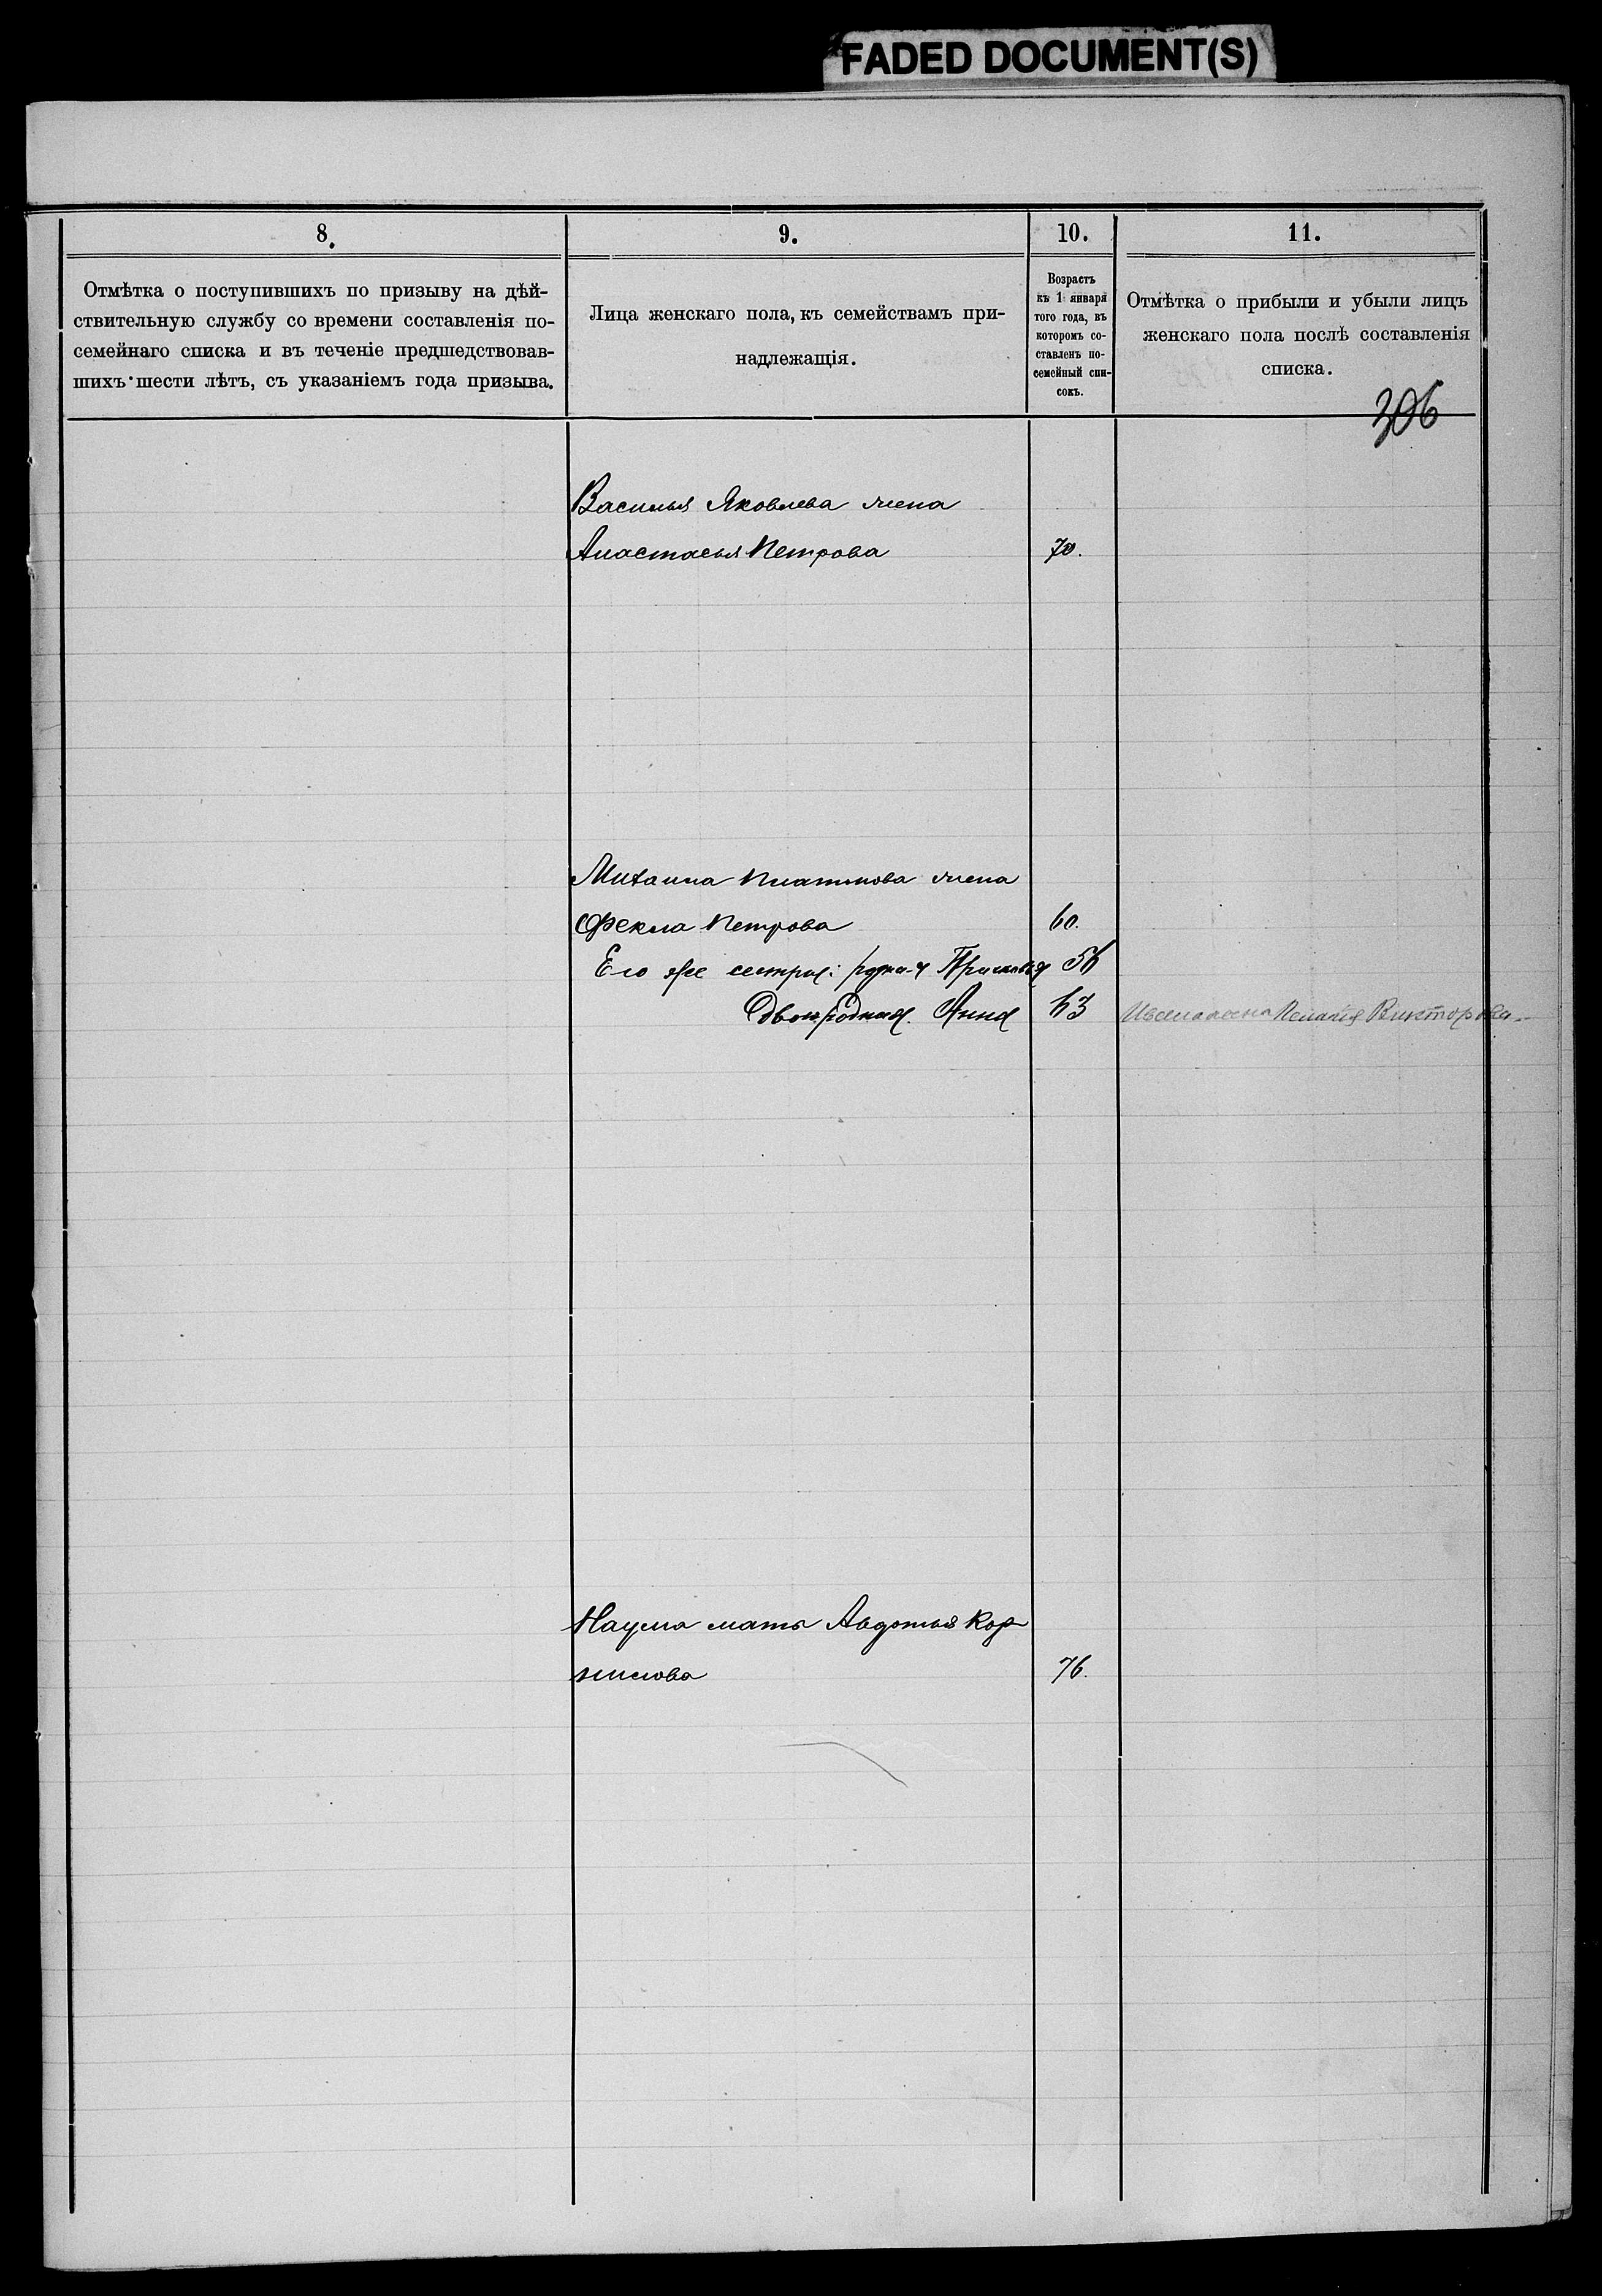 FADED DOCUMENT(S)
8.
Отмѣтка о поступившихъ по призыву на дѣй-
ствительную службу со времени составленія по-
семейнаго списка и въ теченіе предшедствовав-
шихъ шести лѣтъ, съ указаніемъ года призыва.
9.
Лица женскаго пола, къ семействамъ при-
надлежащія.
10.
Возрастъ
къ 1 января
того года, въ
которомъ со-
ставленъ по-
семейный спи-
сокъ.
11.
Отмѣтка о прибыли и убыли лицъ
женскаго пола послѣ составленія
списка.
306
Василья Яковлева жена
Анастасья Петрова 70.
Михаила Платонова жена
Фекла Петрова 60.
Его же сестра: родная Прасковья 56
Двоюродная. Анна 63 Пелагія Викторова
Наума мать Авдотья Кор
нилова 76.